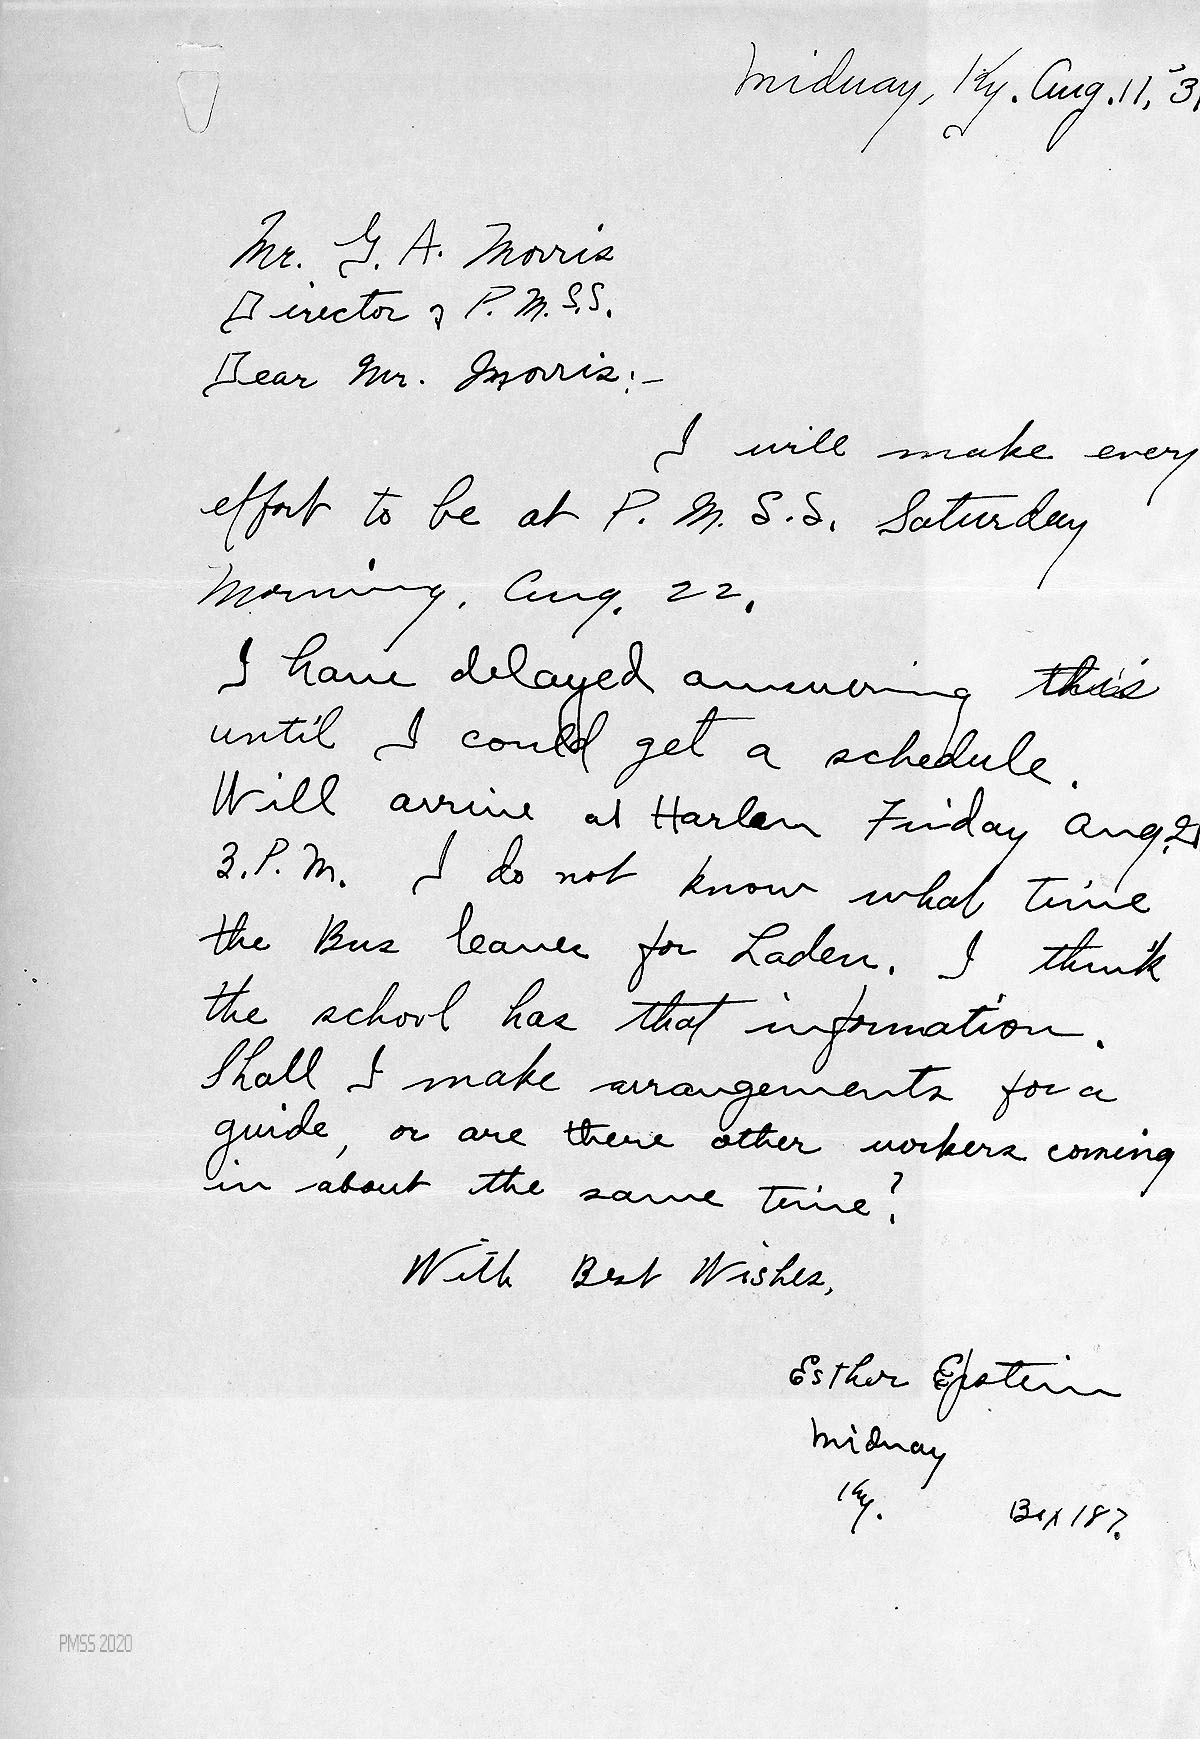 Midway, Ky. Aug. 11, '3
Mr. G. A. Morris
Director of P. M. S.S.
Dear Mr. Morris:-
I will make every
effort to be at P. M. S.S. Saturday
Morning, Aug. 22.
I have delayed answering this
until I could get a schedule.
Will arrive at Harlan Friday Aug. 21
3. P. M. I do not know what time
the Bus leaves for Laden. I think
the school has that information.
Shall I make arrangements for a
guide, or are there other workers coming
in about the same time?
With Best Wishes,
Esther Epstein
Midway
Ky. Box 187.
PMSS 2020